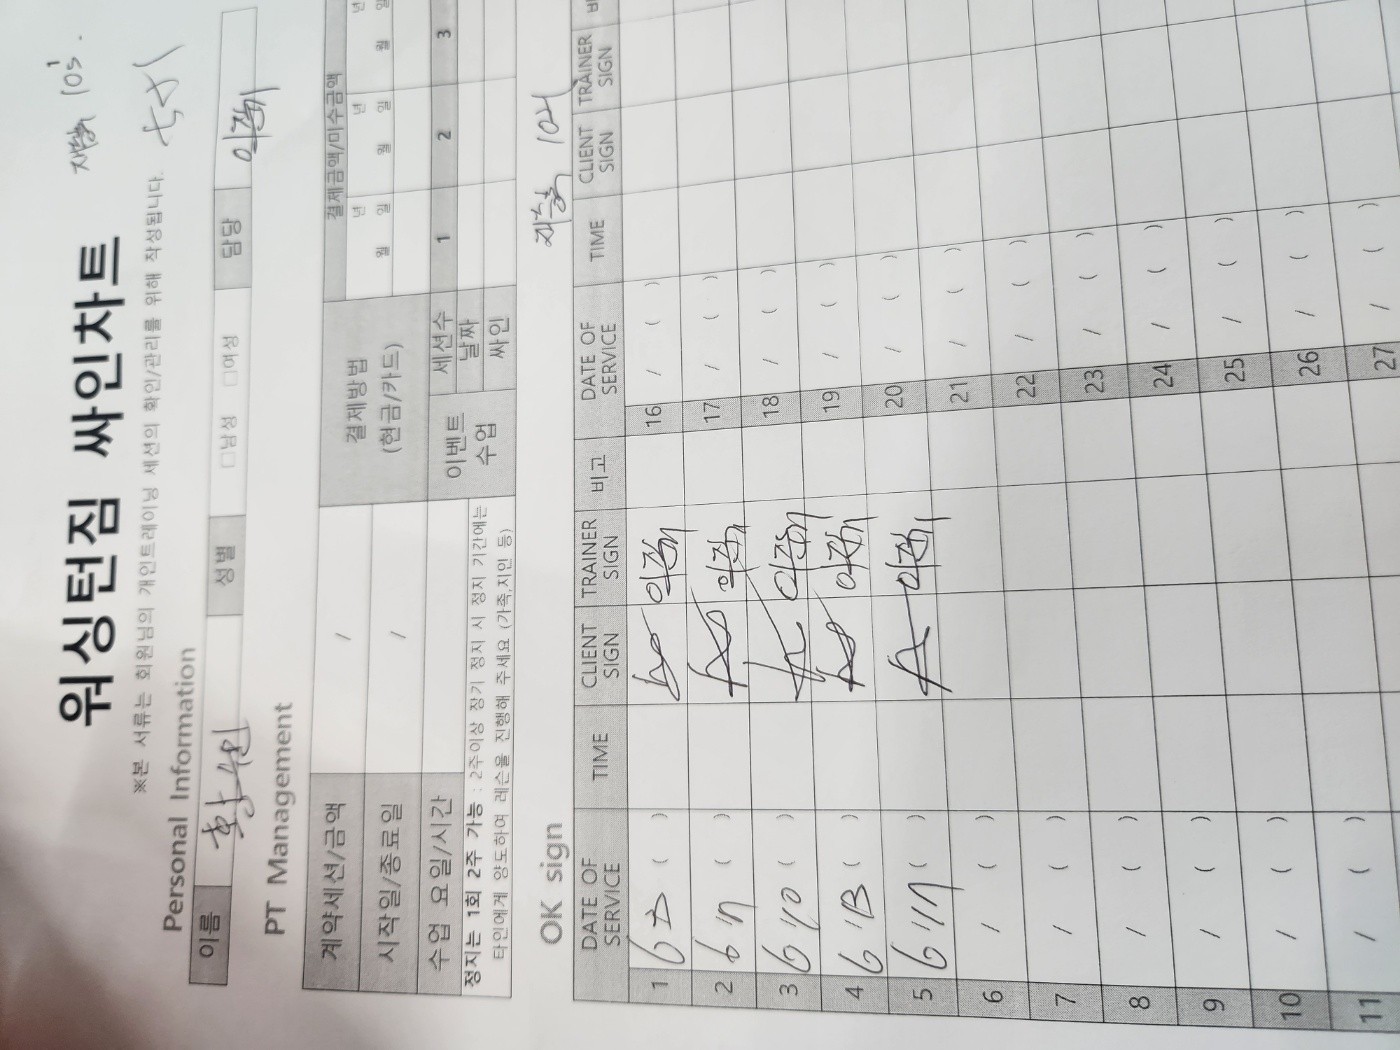 워싱턴짐 싸인차트
※본 서류는 회원님의 개인트레이닝 세션의 확인/관리를 위해 작성됩니다.
Personal Information
이름 성별 □남성 □여성 담당
PT Management
계약세션/금액 / 결제방법 (현금/카드) 결제금액/미수금액
년 년 년
시작일/종료일 / 월 일 월 일 월 일
수업 요일/시간 이벤트 수업 세션수 1 2 3
날짜
싸인
정지는 1회 2주 가능 : 2주이상 장기 정지 시 정지 기간에는
타인에게 양도하여 레슨을 진행해 주세요 (가족,지인 등)
OK sign 재등록
DATE OF SERVICE TIME CLIENT SIGN TRAINER SIGN 비고 DATE OF SERVICE TIME CLIENT SIGN TRAINER SIGN
1 ( ) 16 / ( )
2 ( ) 17 / ( )
3 6/10 ( ) 18 / ( )
4 6/13 ( ) 19 / ( )
5 6/17 ( ) 20 / ( )
6 / ( ) 21 / ( )
7 / ( ) 22 / ( )
8 / ( ) 23 / ( )
9 / ( ) 24 / ( )
10 / ( ) 25 / ( )
11 / ( ) 26 / ( )
27 / ( )